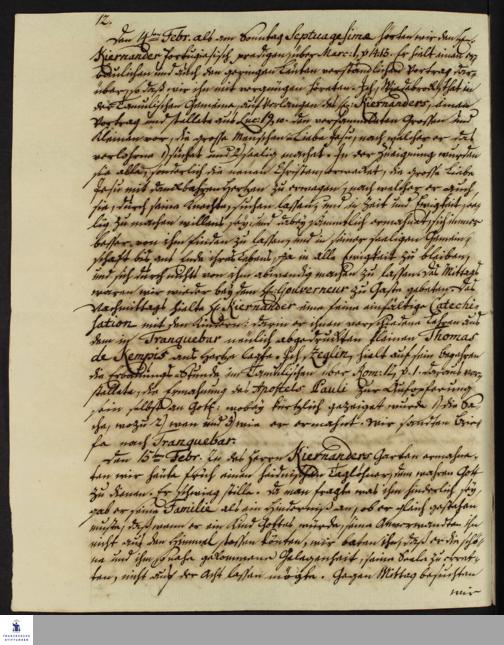 12.
Den 14ten Febr. als am Sonntag Septuagesimae hörten wir den Hrn.
Kiernander Portugisisch predigen, über Marc: 1, v 14.15. Er hielt einen er-
baulichen und auch den geringen Leuten verständlichen Vortrag dar-
über, so daß wir ihn mit vergnügen höreten. Hr.
der Tamulischen Gemeine, auf Verlangen des Hr. Kiernanders, einen
Vortrag und stellete aus Luc: 19, 10. den versammleten Grossen und
Kleinen vor, die grosse Menschen-Liebe Jesu, nach welcher er das
verlohrne 1) suchet und 2) seelig machet. In der Zueignung wurden
sie alle, sonderlich die neuen Christen, ermahnet, die grosse Liebe
Jesu mit dankbahren Herzen zu erwegen, nach welcher er auch
sie, durch seine Knechte, suchen lassen, und in Zeit und Ewigkeit see-
lig zu machen willens sey; und dabey sämtlich ermahnet, sich immer
besser von ihm finden zu lassen, und in seiner seeligen Gemein-
schaft bis ans Ende ihres Lebens, ja in alle Ewigkeit zu bleiben,
und sich durch nichts von ihm abwendig machen zu lassen. Des Mittags
waren wir wieder bey dem H. Gouverneur zu Gaste gebeten. Des
Nachmittags hielte H. Kiernander eine feine einfältige Catechi-
sation mit den Kindern: darin er ihnen verschiedene Lehren aus
dem in Tranquebar neulich abgedruckten kleinen Thomas
de Kempis ans Herze legte. Hr. Zeglin, hielt auf sein Begehren
die Erbauungs-Stunde im Tamulischen über Rom: 12, v. 1. daraus vor-
stellete, die Ermahnung des Apostels Pauli zur Aufopferung
sein selbst an Gott: wobey kürtzlich gezeiget wurde 1) die Sa-
che, wozu 2) wen und 3) wie er ermahnet. Wir sandten Brie-
fe nach Tranquebar.
Den 15ten Febr. In des Herrn Kiernanders Garten ermahne-
ten wir heute früh einen heidnischen Taglöhner, dem wahren Gott
zu dienen. Er schwieg stille. Da man fragte was ihm hinderlich sey,
gab er seine Familie als ein Hinderniß an, ob er gleich gestehen
muste, daß, wenn er ein Kind Gottes würde, seine Anverwandten ihn
nicht aus dem Himmel stossen könten, wir baten ihn, daß er die schö-
ne und ihm so nahe gekommene Gelegenheit, seine Seele zu erret-
ten, nicht aus der Acht lassen mögte. Gegen Mittag besuchten
wir
FRANCKESCHE
STIFTUNGEN